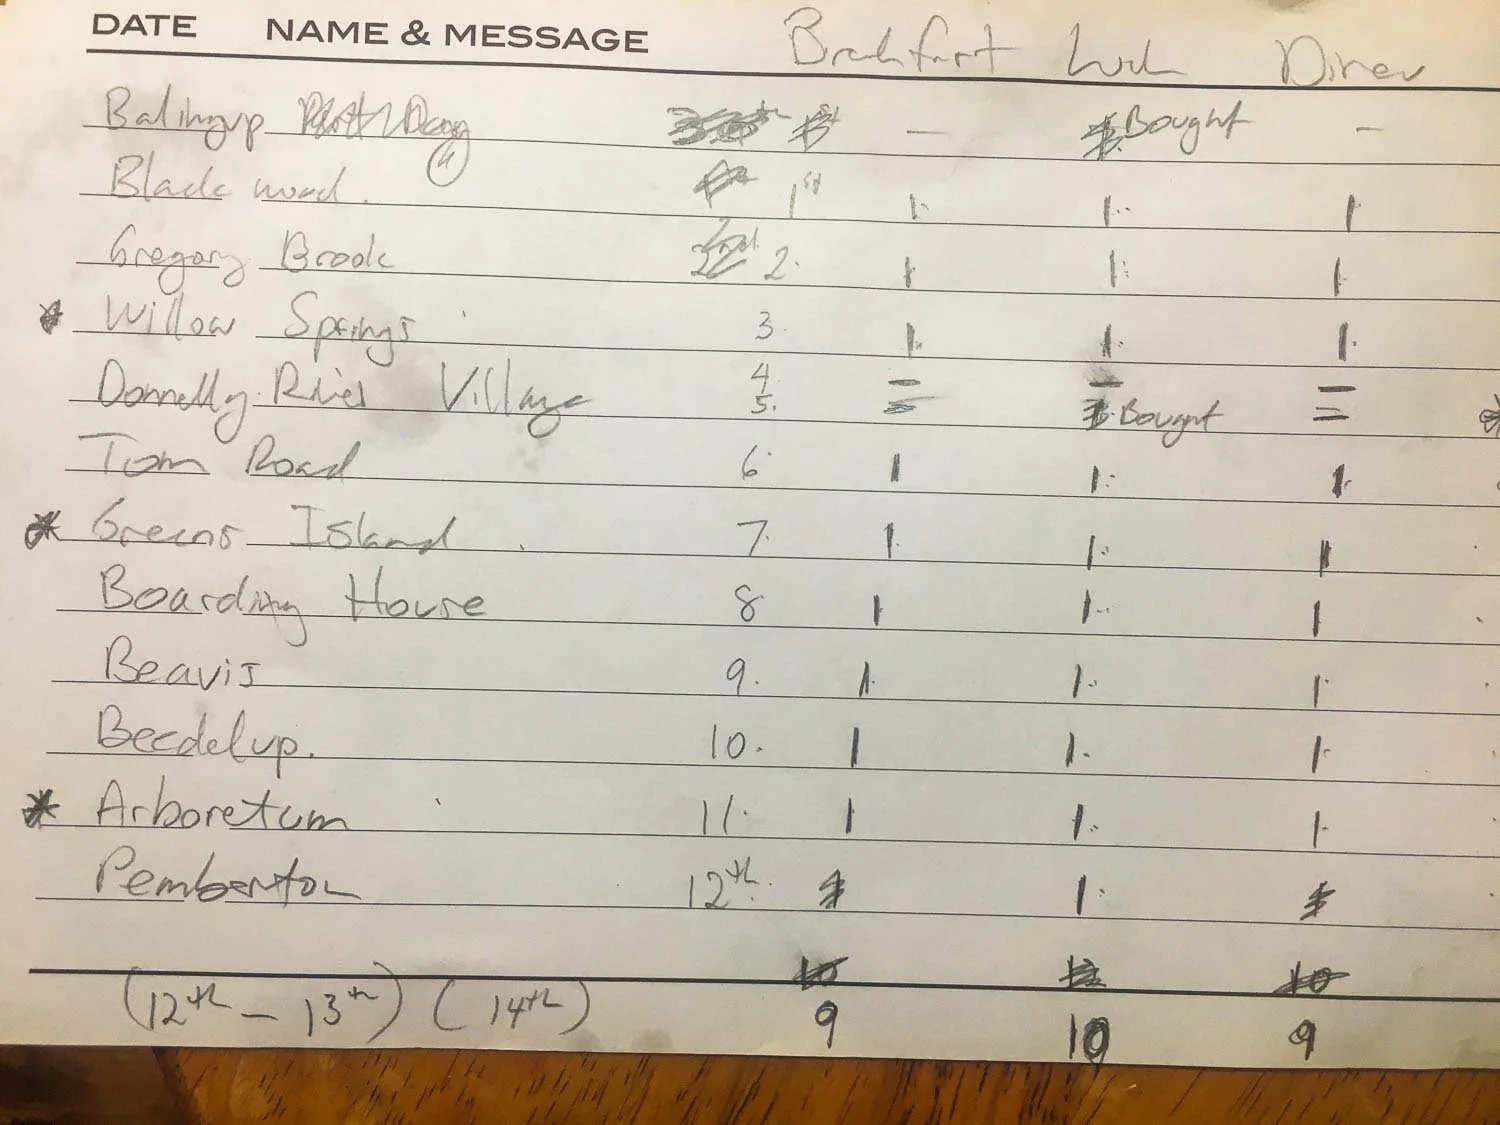 DATE NAME & MESSAGE Breakfast Luch Diner
Balingup - Bought -
Blackwood. 1st 1. 1. 1
Gregory Brook 2. 1. 1. 1.
* Willow Springs 3. 1. 1. 1.
Donnelly River Village 4 - - -
5. - Bought -
Tom Road 6. 1 1. 1.
* Greens Island 7. 1. 1. 1
Boarding House 8 1 1. 1
Beavis 9. 1. 1. 1.
Beedelup. 10. 1 1. 1.
* Arboretum 11. 1 1. 1.
Pemberton 12th. 1.
(12th - 13th) (14th) 9 10 9